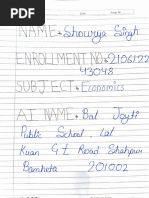 NAME → Shourya Singh
ENROLLMENT NO → 2106122
43048
SUBJECT → Economics
AI NAME → Bal Joyti
Public School, Lal
Kuan G.T. Road Shahpur
Bamheta 201002